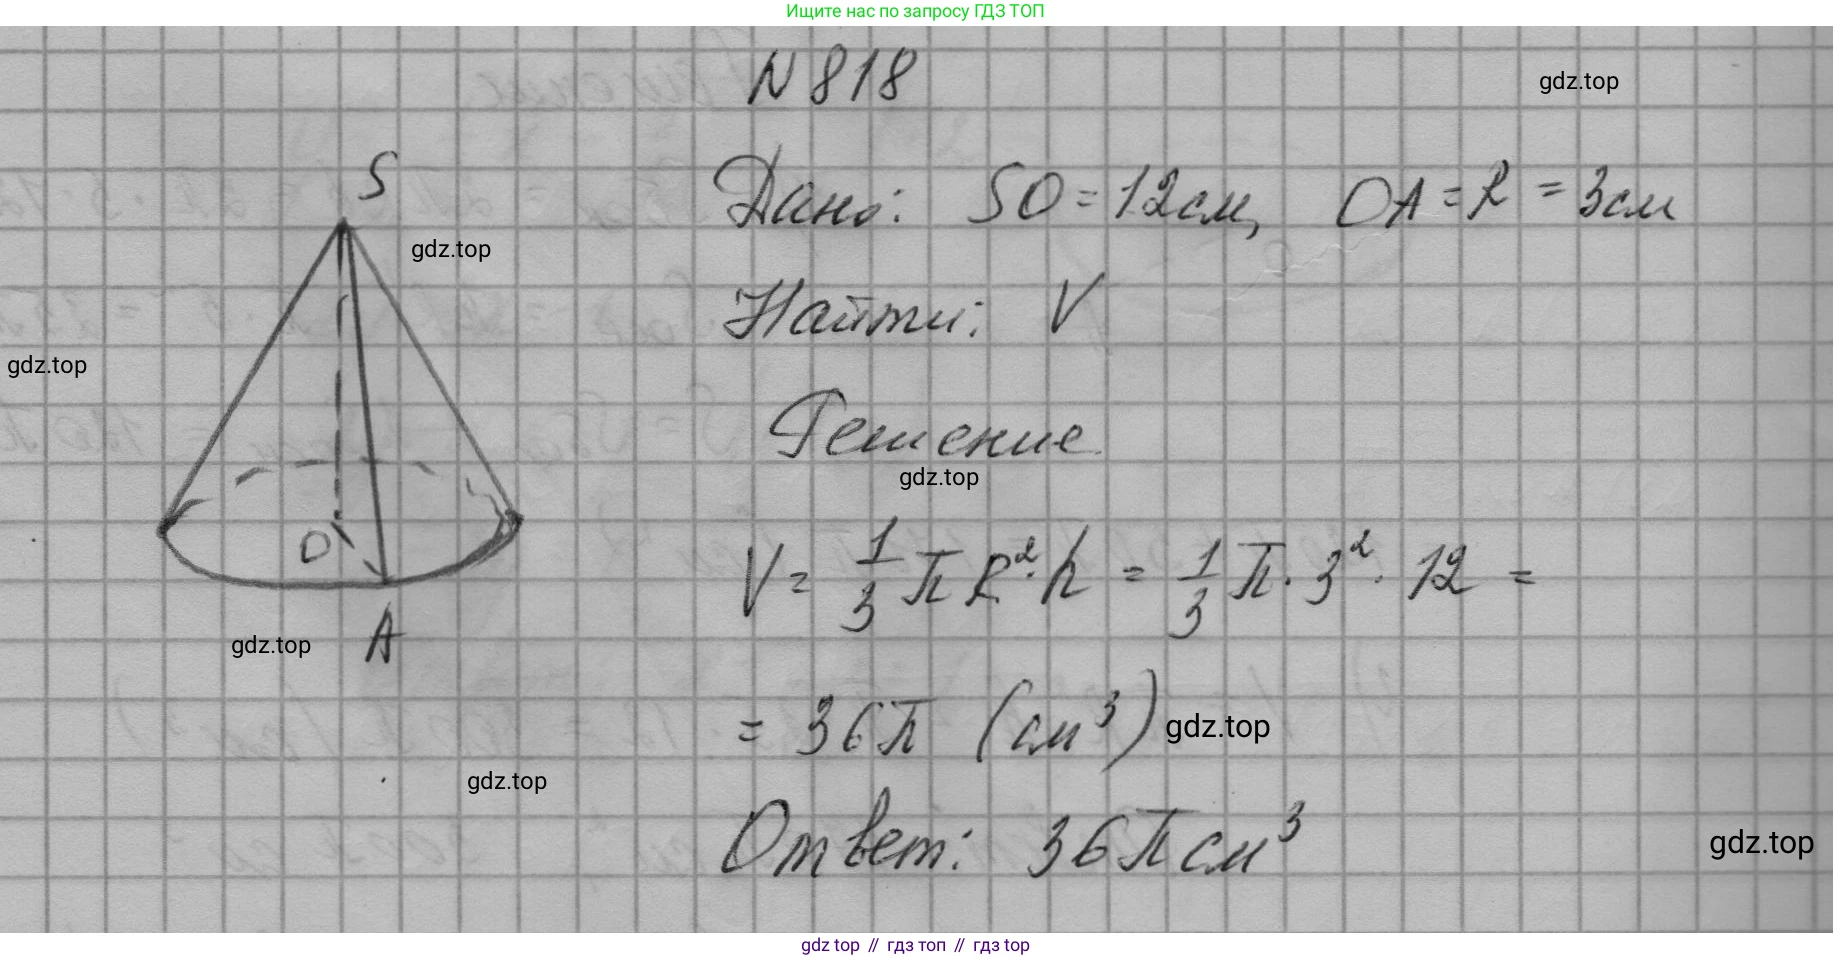 Ищите нас по запросу ГДЗ ТОП
N 818
gdz.top
S
Дано: SO = 12см, OA = R = 3см
gdz.top
Найти: V
gdz.top
Решение
gdz.top
O
V = 1/3 π R²·h = 1/3 π · 3² · 12 =
A
gdz.top
= 36π (см³)
gdz.top
gdz.top
Ответ: 36π см³
gdz.top
gdz top // гдз топ // гдз top